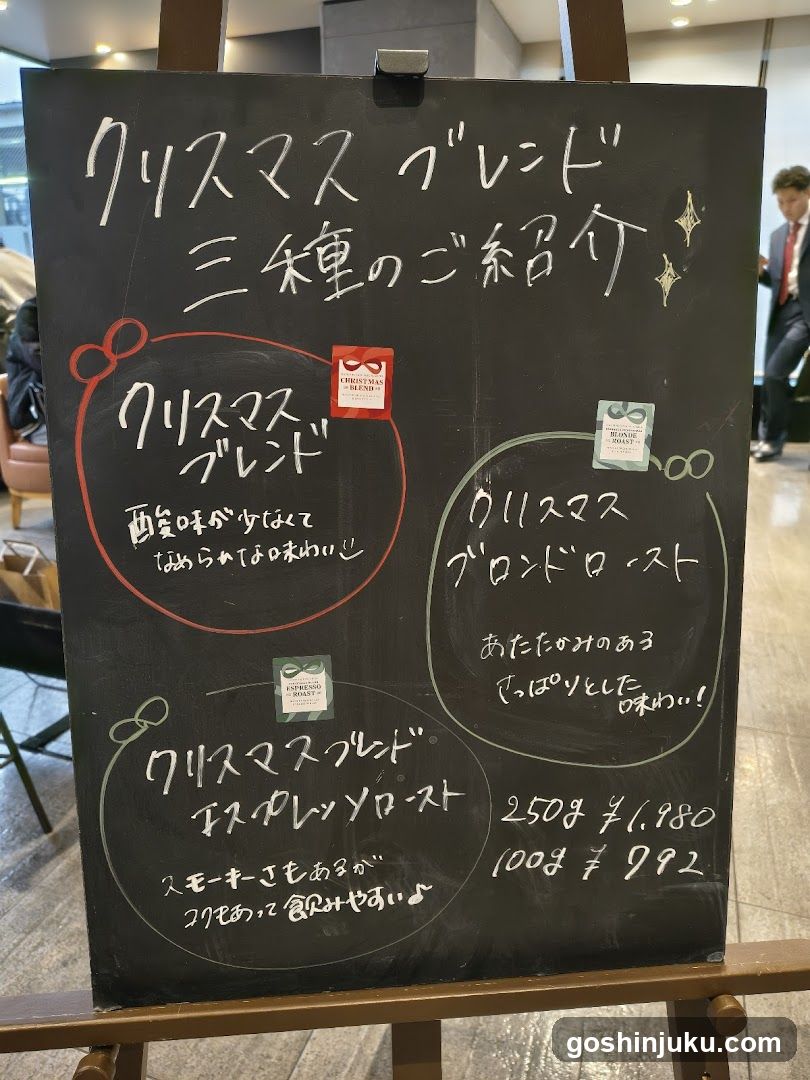 クリスマス ブレンド
三種のご紹介
CHRISTMAS
BLEND
クリスマス
ブレンド
酸味が少なくて
なめらかな味わい
BLONDE
ROAST
クリスマス
ブロンドロースト
あたたかみのある
さっぱりとした
味わい!
ESPRESSO
ROAST
クリスマスブレンド
エスプレッソロースト
スモーキーさもあるが
コクもあって飲みやすい♪
250g ¥1,980
100g ¥792
goshinjuku.com